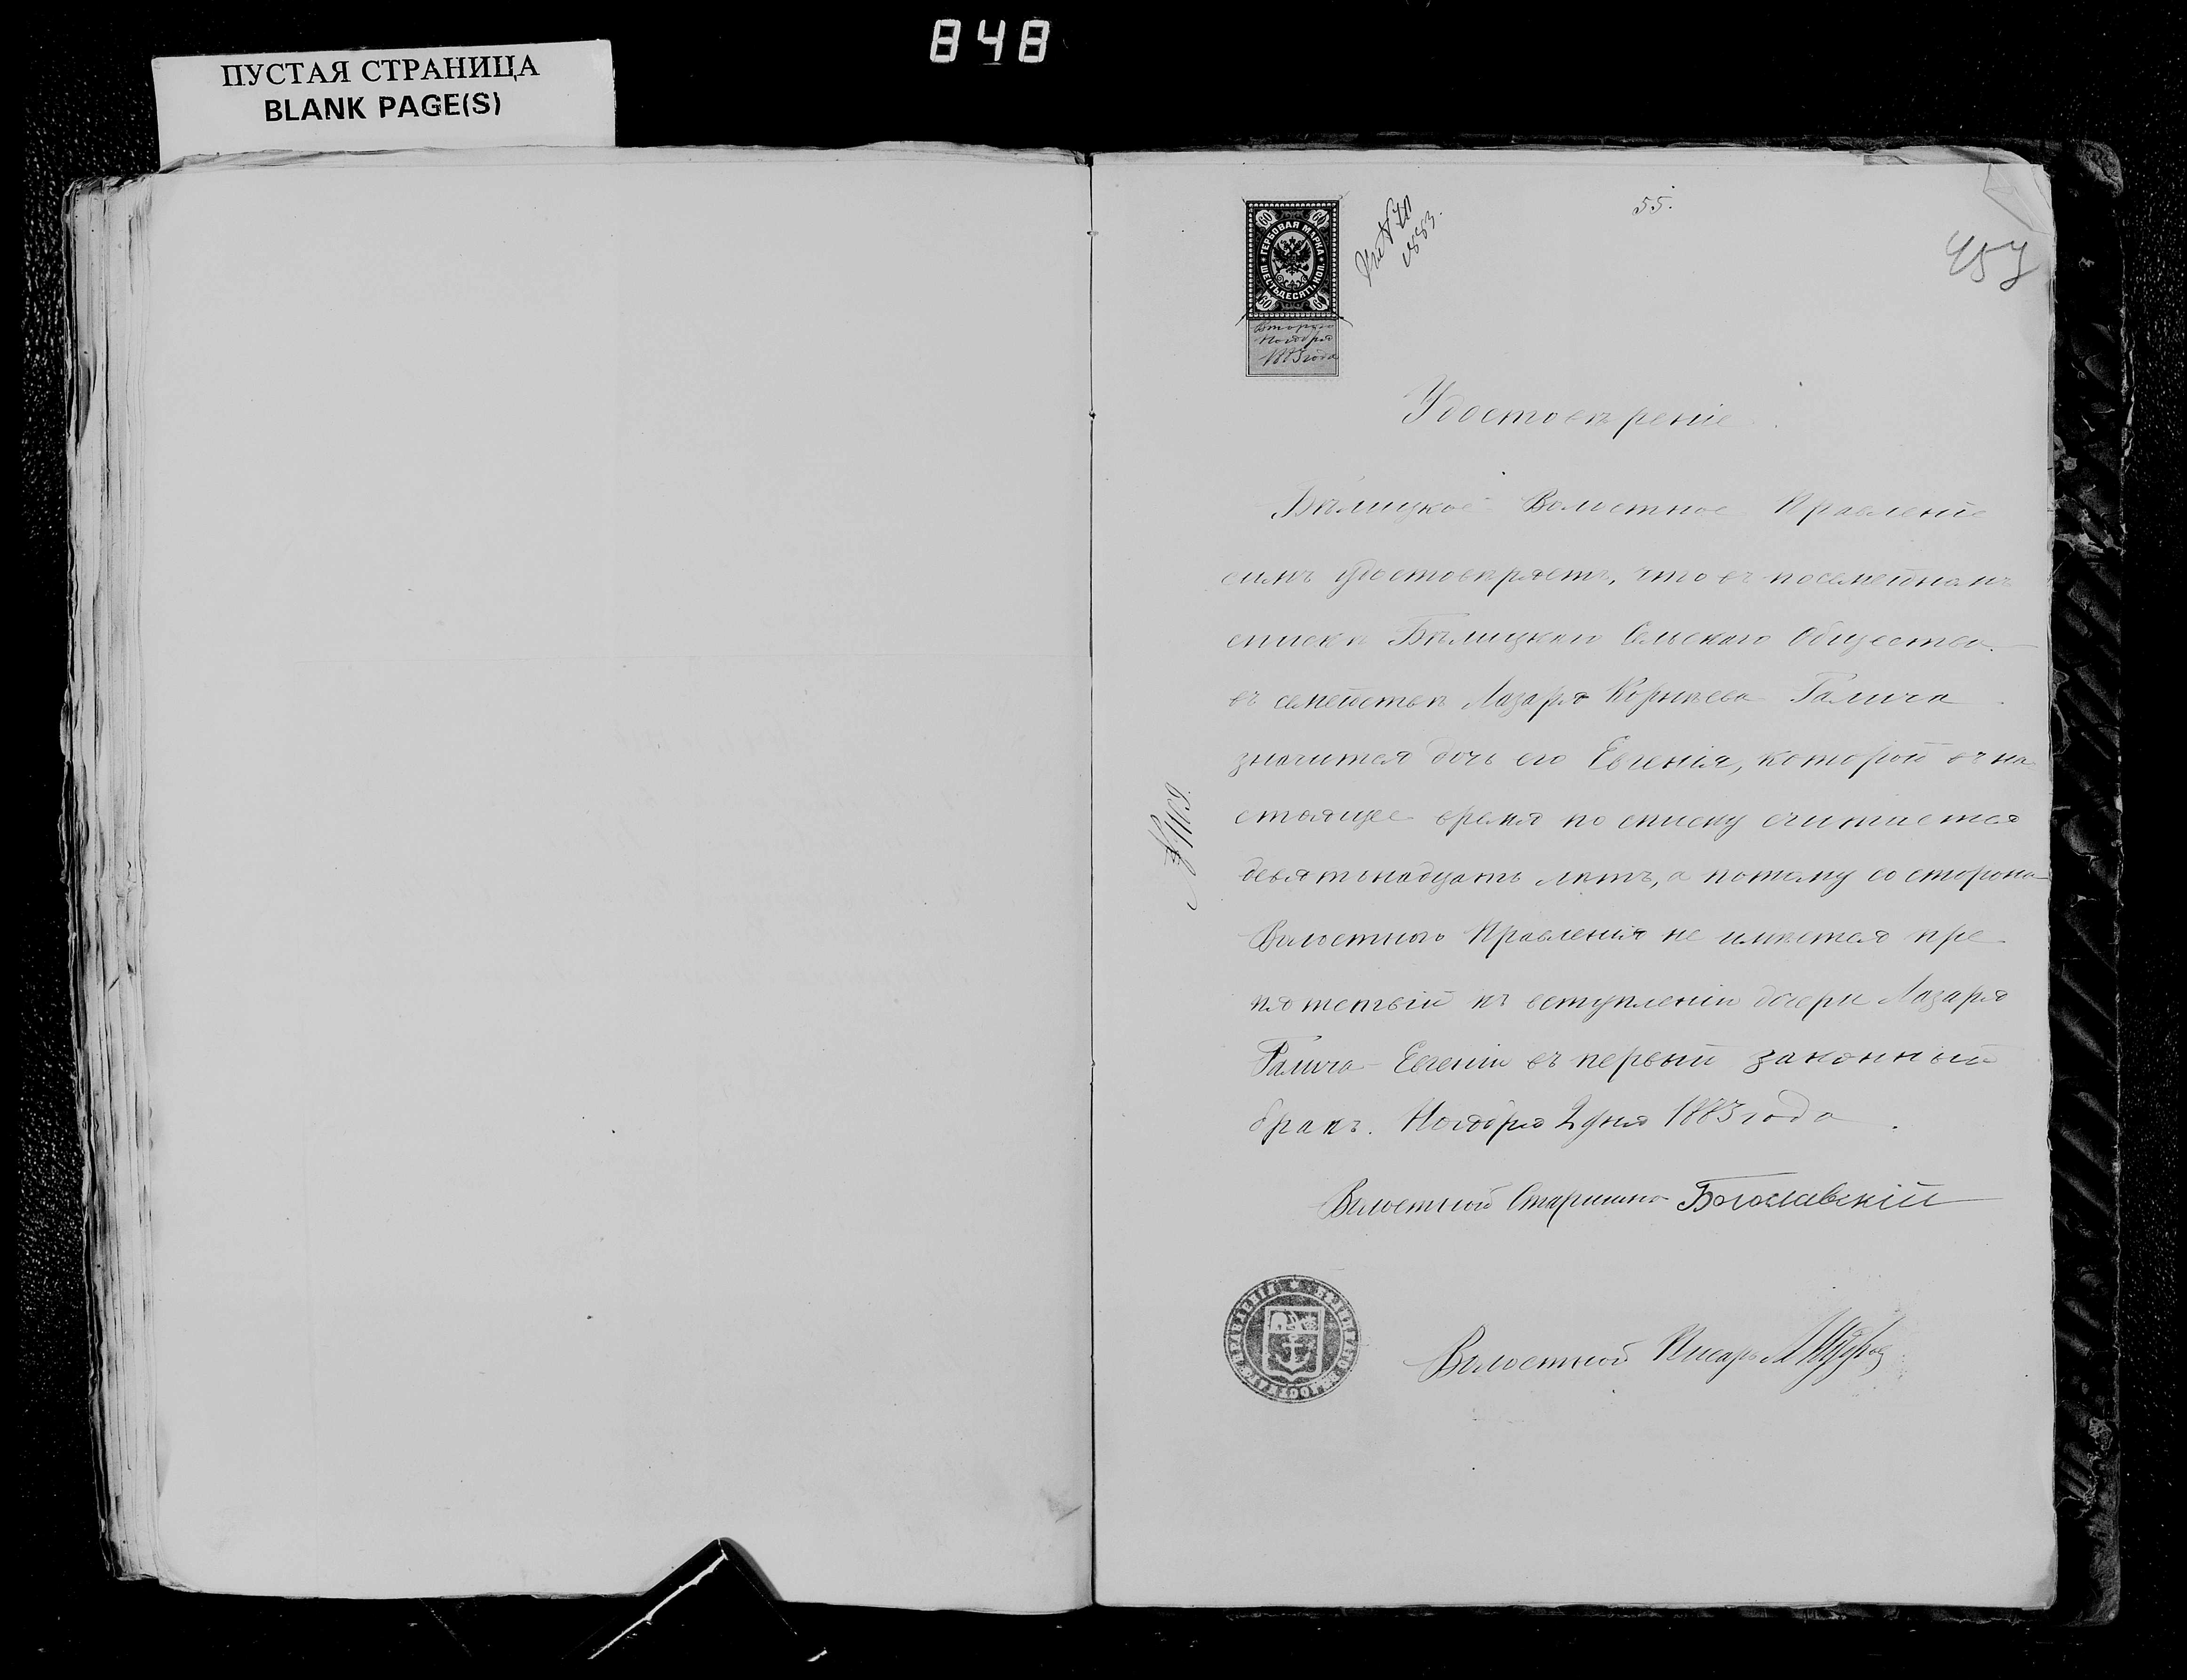 848
ПУСТАЯ СТРАНИЦА
BLANK PAGE(S)
55.
1883.
457
60 60
ГЕРБОВАЯ МАРКА
ШЕСТЬДЕСЯТЪ КОП.
60 60
Второго
Ноября
1883 года
Удостовѣреніе
Бѣлицкое Волостное Правленіе
симъ удостовѣряетъ, что въ посемейномъ
спискѣ Бѣлицкаго Сельскаго Общества
въ семействѣ Лазаря Корнѣева Галича
значится дочь его Евгенія, которой въ на
стоящее время по списку считается
девятнадцать лѣтъ, а потому со стороны
Волостного Правленія не имѣется пре
пятствій къ вступленію дочери Лазаря
Галича Евгеніи въ первый законный
бракъ. Ноября 2 дня 1883 года.
Волостной Старшина Богославскій
Волостной Писарь